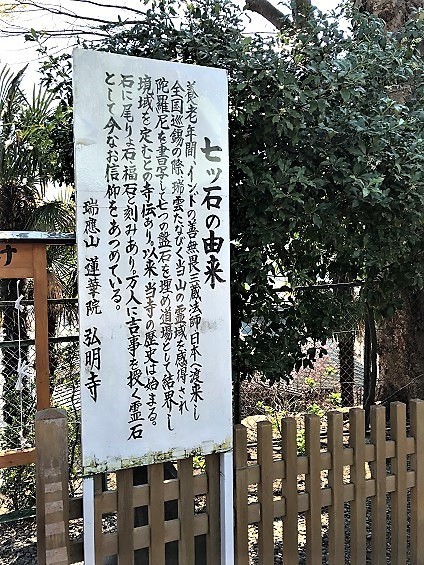 七ッ石の由来
養老年間、インドの善無畏三蔵法師、日本へ渡来し
全国巡錫の際、瑞雲たなびく当山の霊域を感得され
陀羅尼を書写し七つの盤石を埋め道場として結界し
境域を定むとの寺伝あり。以来、当寺の歴史は始まる。
石に尾りよ石・福石と刻みあり。万人に吉事を授く霊石
として今なお信仰をあつめている。
瑞應山 蓮華院 弘明寺